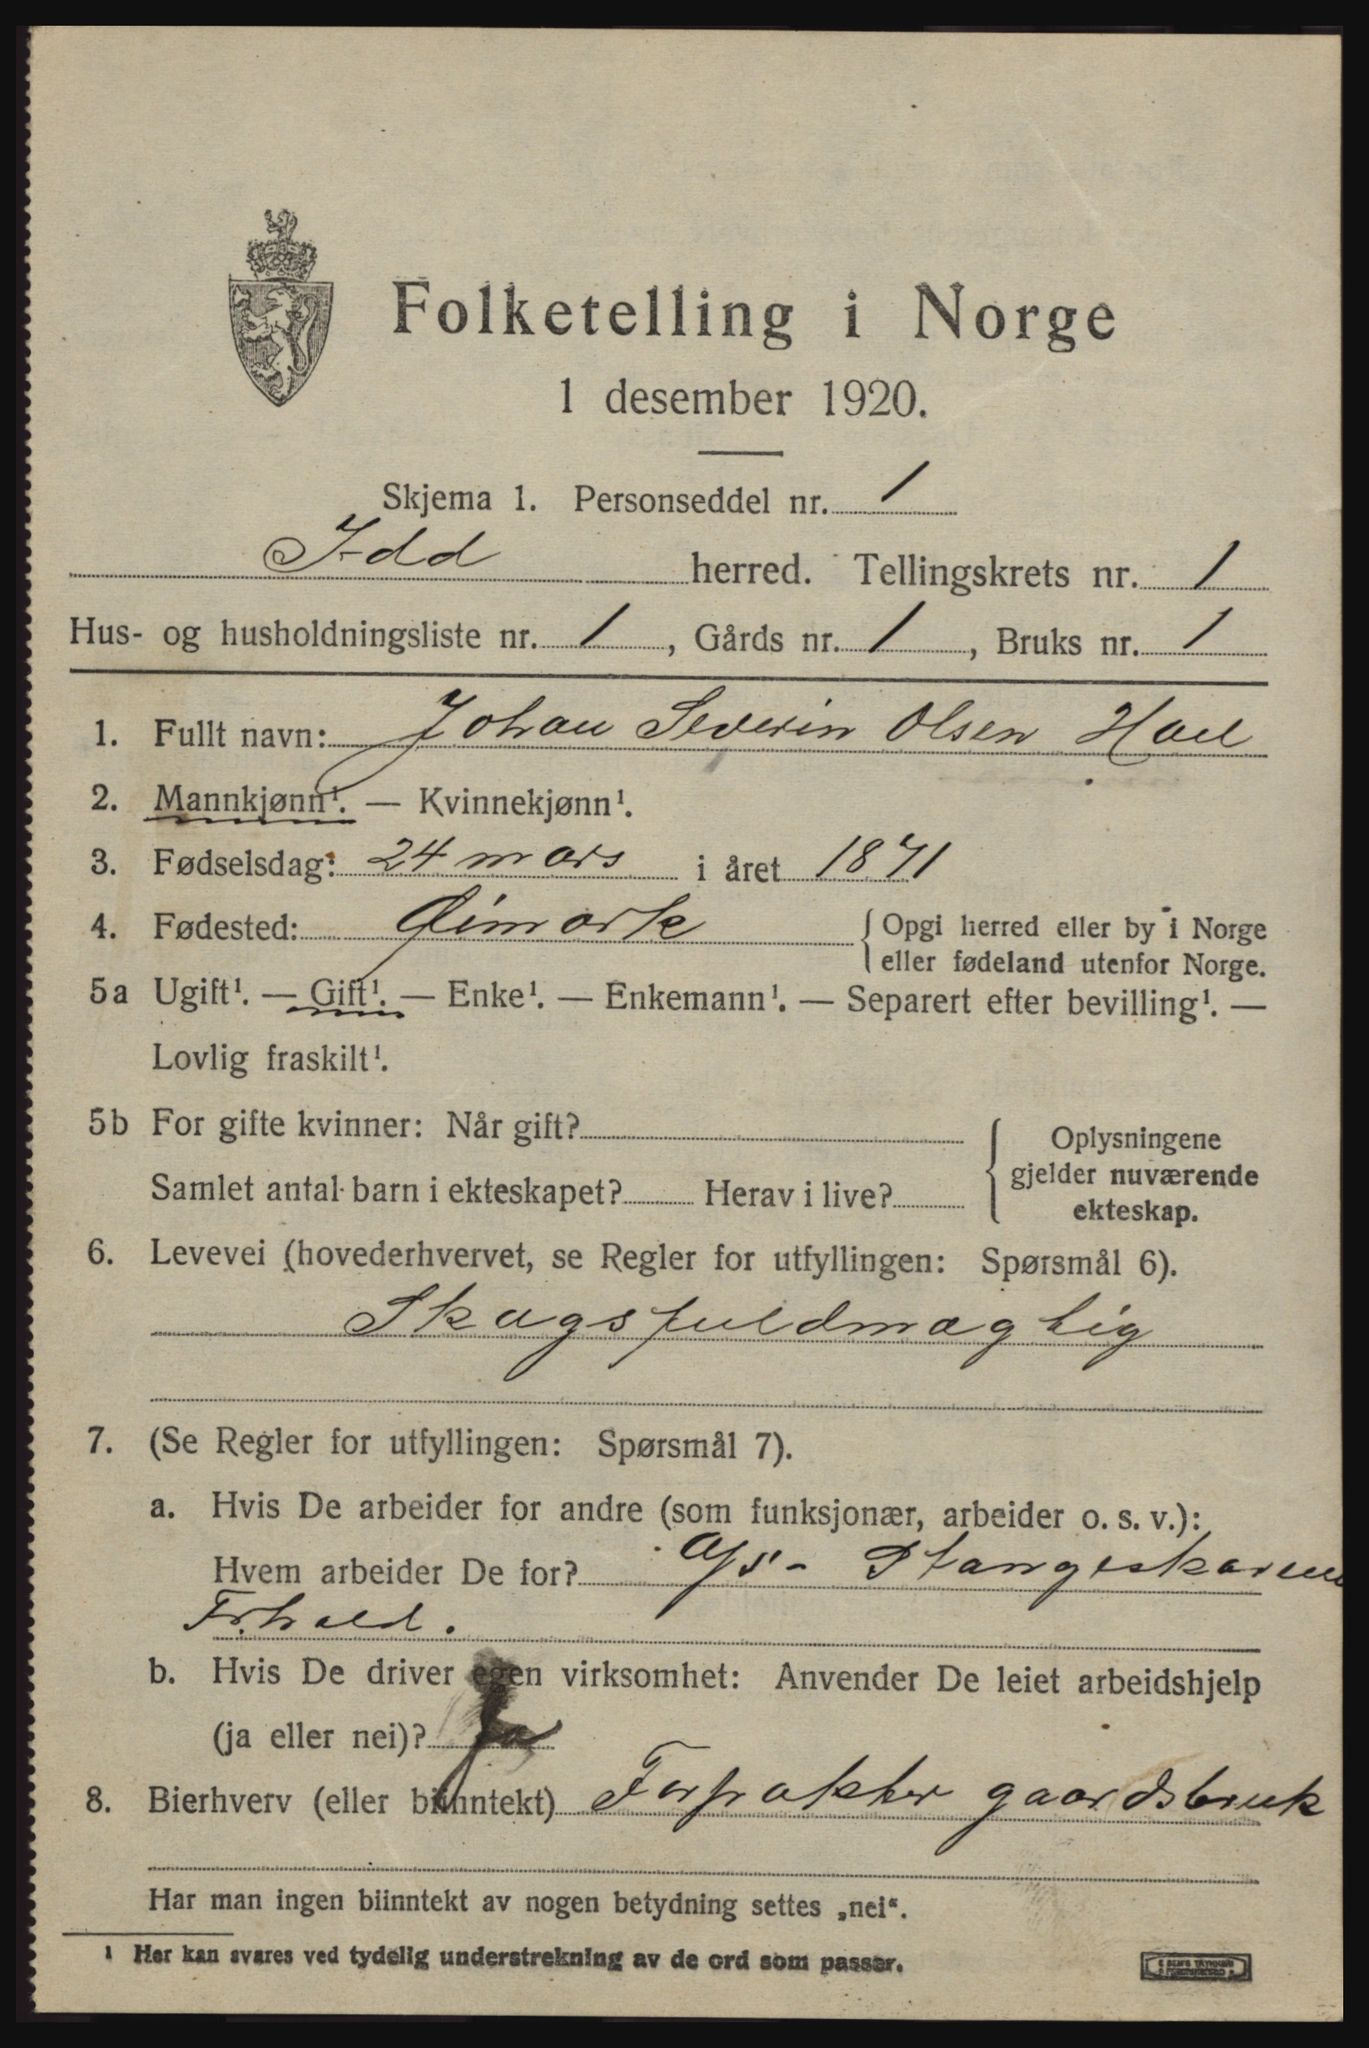 Folketelling i Norge
1 desember 1920.
Skjema 1. Personseddel nr. 1
Idd herred. Tellingskrets nr. 1
Hus- og husholdningsliste nr. 1, Gårds nr. 1, Bruks nr. 1
1. Fullt navn: Johan Severin Olsen Hoel
2. Mannkjønn¹. — Kvinnekjønn¹.
3. Fødselsdag: 24 mars i året 1871
4. Fødested: Øimark { Opgi herred eller by i Norge
eller fødeland utenfor Norge.
5a Ugift¹. — Gift¹. — Enke¹. — Enkemann¹. — Separert efter bevilling¹. —
Lovlig fraskilt¹.
5b For gifte kvinner: Når gift?
Samlet antal barn i ekteskapet? Herav i live?
{ Oplysningene
gjelder nuværende
ekteskap.
6. Levevei (hovederhvervet, se Regler for utfyllingen: Spørsmål 6).
Skogsfuldmægtig
7. (Se Regler for utfyllingen: Spørsmål 7).
a. Hvis De arbeider for andre (som funksjonær, arbeider o. s. v.):
Hvem arbeider De for? A/S - Stangeskovene
Fr.hald.
b. Hvis De driver egen virksomhet: Anvender De leiet arbeidshjelp
(ja eller nei)? Ja
8. Bierhverv (eller biinntekt) Forpakter gaardsbruk
Har man ingen biinntekt av nogen betydning settes „nei“.
¹ Her kan svares ved tydelig understrekning av de ord som passer.